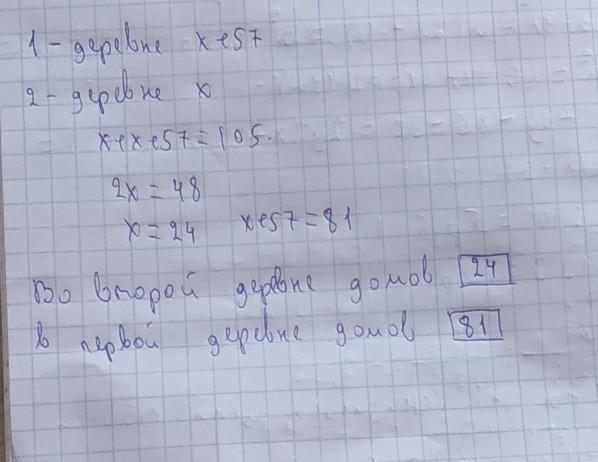 1 - деревне x+57
2 - деревне x
x+x+57=105.
2x = 48
x = 24 x+57=81
Во второй деревне домов 24
в первой деревне домов 81